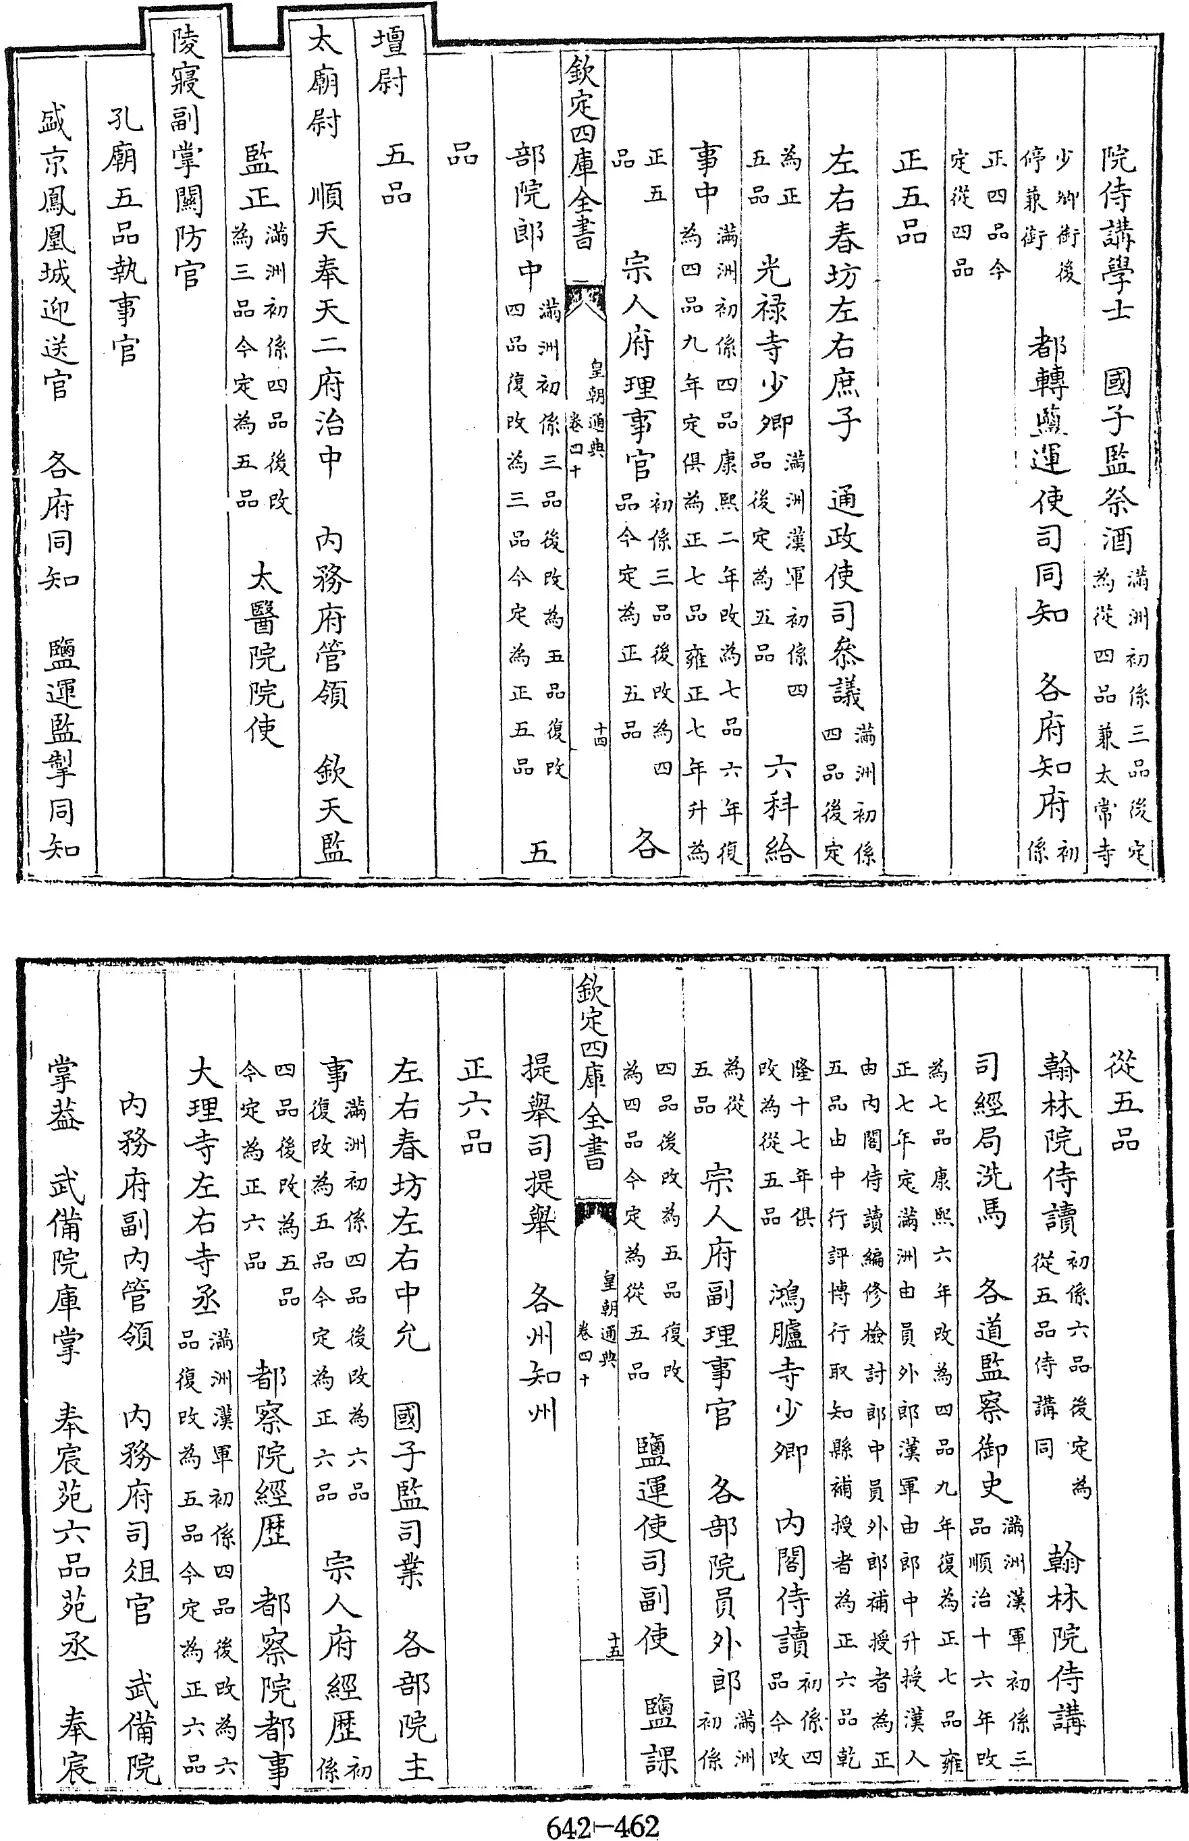 院侍講學士　國子監祭酒滿洲初係三品後定為從四品兼太常寺
少卿銜後停兼銜　都轉鹽運使司同知　各府知府初係
正四品今定從四品
正五品
左右春坊左右庶子　通政使司叅議滿洲初係四品後定
為正五品　光祿寺少卿滿洲漢軍初係四品後定為五品　六科給
事中滿洲初係四品康熙二年改為七品六年復為四品九年定俱為正七品雍正七年升為
正五品　宗人府理事官初係三品後改為四品今定為正五品　各
欽定四庫全書　皇朝通典卷四十　十四
部院郎中滿洲初係三品後改為五品復改四品復改為三品今定為正五品　五
品
壇尉　五品
太廟尉　順天奉天二府治中　內務府管領　欽天監
監正滿洲初係四品後改為三品今定為五品　太醫院院使
陵寢副掌關防官
孔廟五品執事官
盛京鳳凰城迎送官　各府同知　鹽運監掣同知
從五品
翰林院侍讀初係六品後定為從五品侍講同　翰林院侍講
司經局洗馬　各道監察御史滿洲漢軍初係三品順治十六年改
為七品康熙六年改為四品九年復為正七品雍正七年定滿洲由員外郎漢軍由郎中升授漢人
由內閣侍讀編修檢討郎中員外郎補授者為正五品由中行評博行取知縣補授者為正六品乾
隆十七年俱改為從五品　鴻臚寺少卿　內閣侍讀初係四品今改
為從五品　宗人府副理事官　各部院員外郎滿洲初係
四品後改為五品復改為四品今定為從五品　鹽運使司副使　鹽課
欽定四庫全書　皇朝通典卷四十　十五
提舉司提舉　各州知州
正六品
左右春坊左右中允　國子監司業　各部院主
事滿洲初係四品後改為六品復改為五品今定為正六品　宗人府經歷初係
四品後改為五品今定為正六品　都察院經歷　都察院都事
大理寺左右寺丞滿洲漢軍初係四品後改為六品復改為五品今定為正六品
內務府副內管領　內務府司俎官　武備院
掌葢　武備院庫掌　奉宸苑六品苑丞　奉宸
642-462